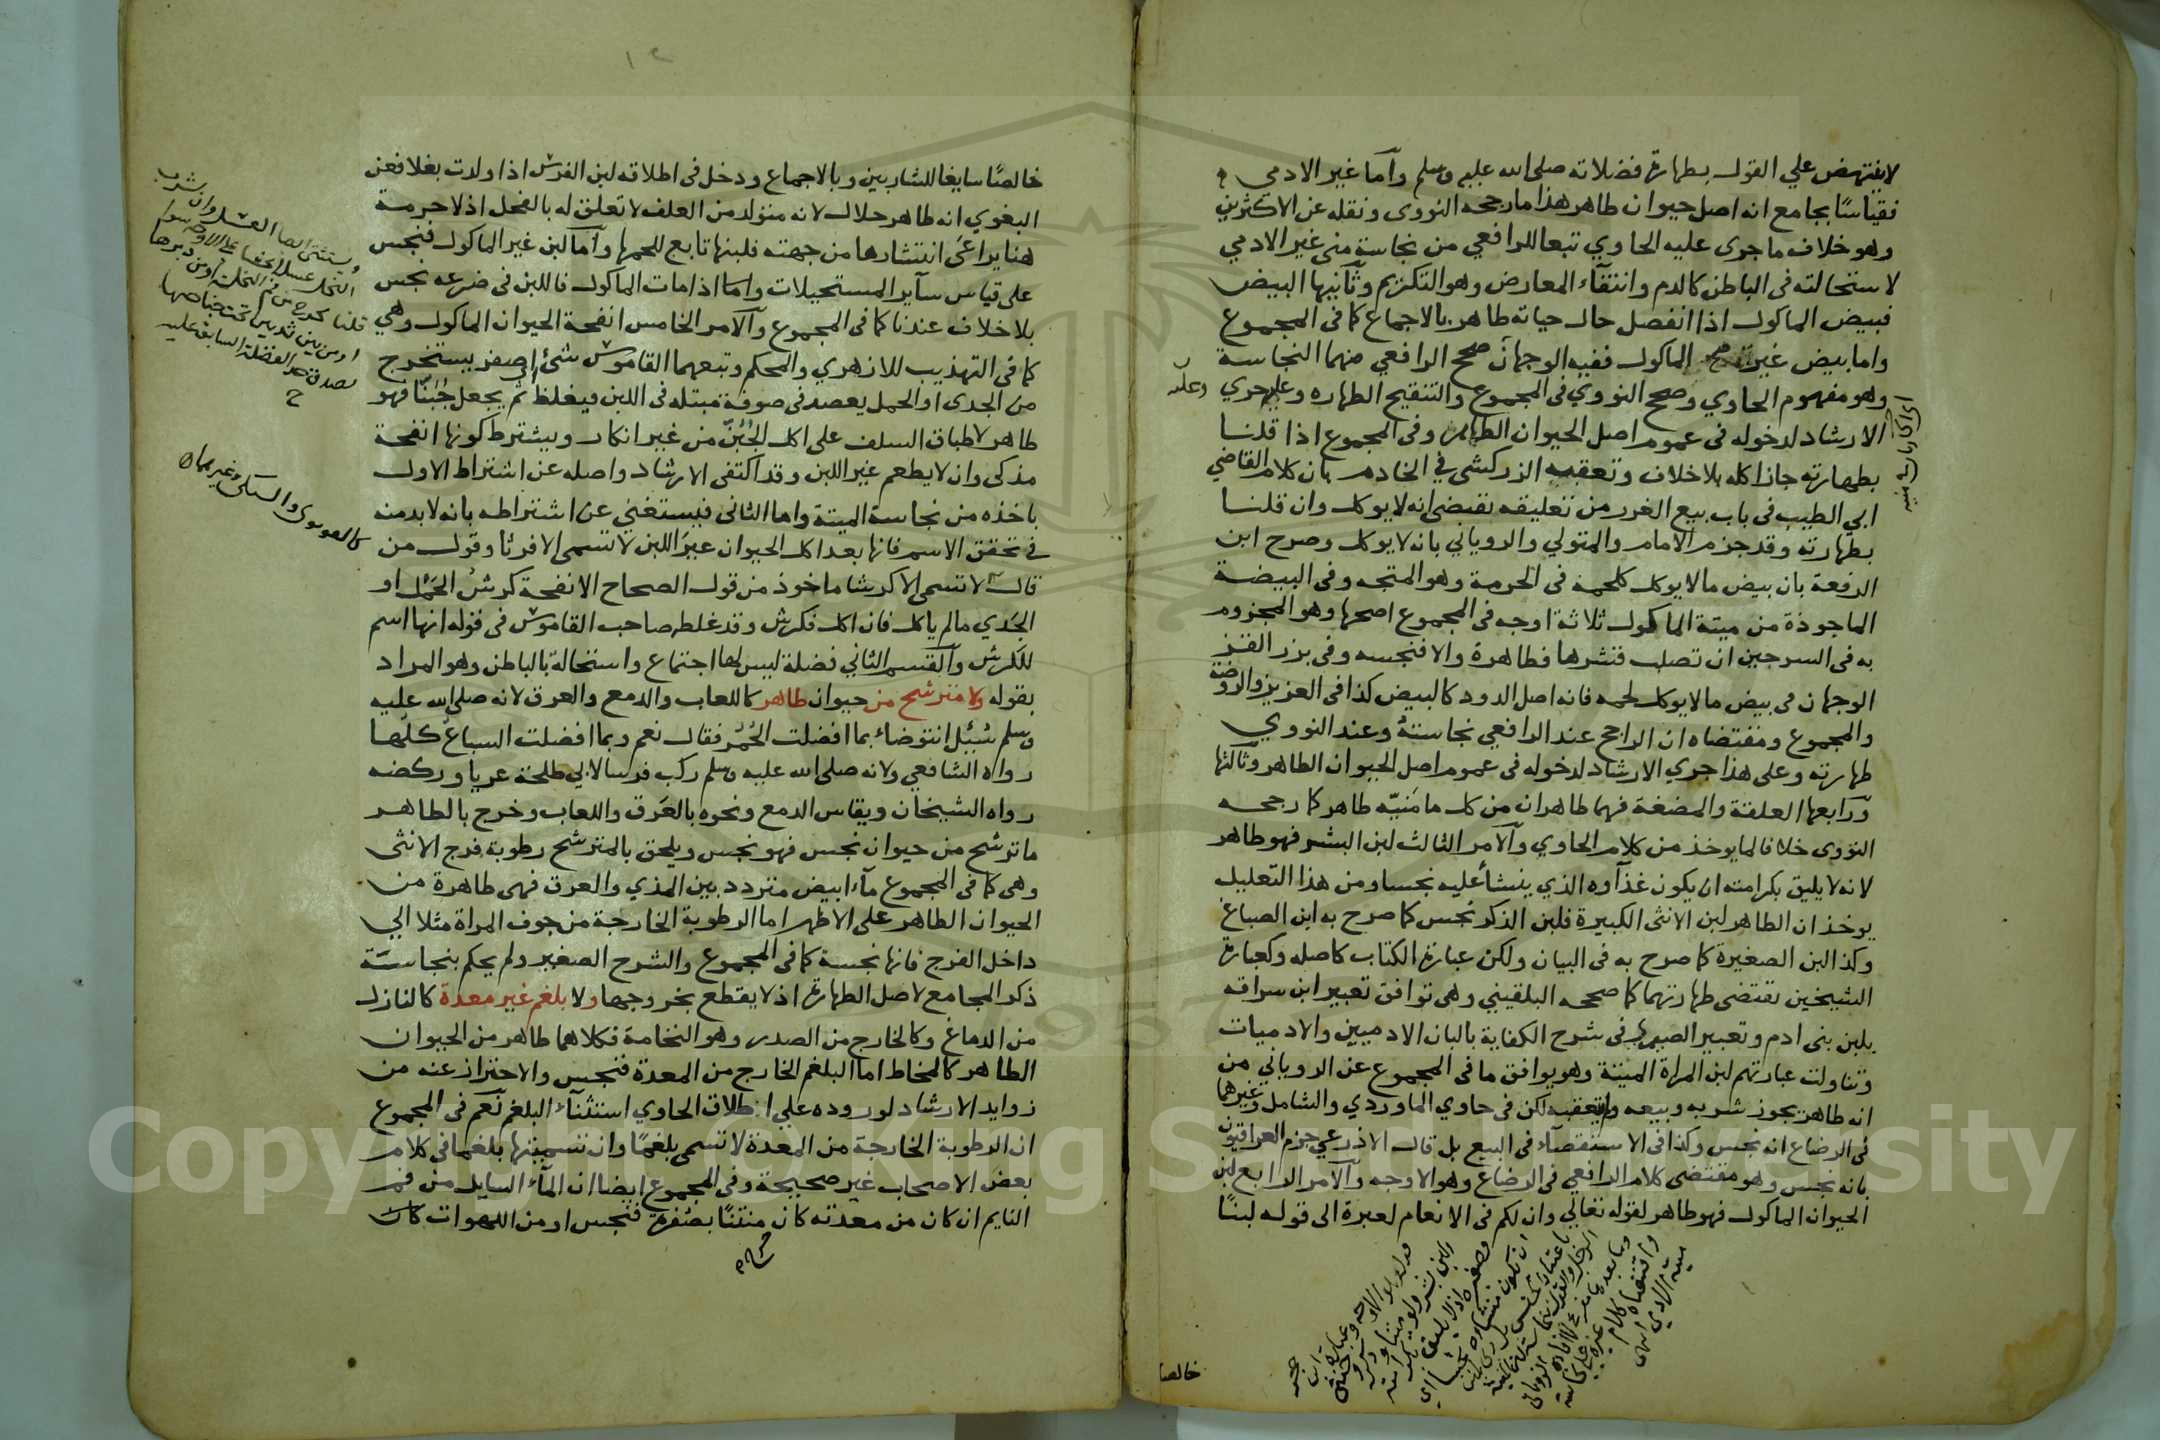 لا ينتهض علي القول بطهارة فضلاته صلى الله عليه وسلم وآما غير الادمي
فقياسًا بجامع انه اصل حيوان طاهر هذا ما رجحه النووى ونقله عن الاكثرين
وهو خلاف ما جرى عليه الحاوي تبعا للرافعي من نجاسة منى غير الادمي
لاستحالته فى الباطن كالدم وانتفآء المعارض وهو التكريم وثانيها البيض
فبيض الماكول اذا انفصل حال حياته طاهر بالاجماع كما فى المجموع
واما بيض غير الماكول ففيه الوجهان صحح الرافعي منهما النجاسة
وهو مفهوم الحاوي وصحح النووي فى المجموع والتنقيح الطهاره وعليه جري
الارشاد لدخوله فى عموم اصل الحيوان الطاهر وفى المجموع اذا قلنا
بطهارته جاز اكله بلا خلاف وتعقبه الزركشى في الخادم بان كلام القاضي
ابي الطيب فى باب بيع الغرر من تعليقه تقتضى انه لا يوكل وان قلنا
بطهارته وقد جزم الامام والمتولي والروياني بانه لا يوكل وصرح ابن
الرفعة بان بيض ما لا يوكل كلحمه فى الحرمة وهو المتجه وفى البيضة
الماخوذة من ميتة الماكول ثلاثة اوجه فى المجموع اصحها وهو المجزوم
به فى السرجين ان تصلب قشرها فطاهرة والا فنجسه وفى بزر القز
الوجهان فى بيض ما لا يوكل لحمه فانه اصل الدود كالبيض كذا فى العزيز والروضة
والمجموع ومقتضاه ان الراجح عند الرافعي نجاسته وعند النووي
طهارته وعلى هذا جري الارشاد لدخوله فى عموم اصل الحيوان الطاهر وثالثها
ورابعها العلقة والمضغة فهما طاهران من كل ما مَنيّه طاهر كما رجحه
النووى خلافا لما يوخذ من كلام الحاوي وآلامر الثالث لبن البشر فهو طاهر
لانه لا يليق بكرامته ان يكون غذآوه الذي ينشأ عليه نجسا ومن هذا التعليل
يوخذ ان الطاهر لبن الانثى الكبيرة فلبن الذكر نجس كما صرح به ابن الصباغ
وكذا لبن الصغيرة كما صرح به فى البيان ولكن عبارة الكتاب كاصله وكعبارة
الشيخين تقتضى طهارتهما كما صححه البلقيني وهى توافق تعبير ابن سراقه
بلبن بنى ادم وتعبير الصيمري فى شرح الكفاية بالبان الادميين والادميات
وتناولت عبارتهم لبن المراة الميتة وهو يوافق ما فى المجموع عن الروياني من
انه طاهر يجوز شربه وبيعه ولم يتعقبه لكن فى حاوي الماوردي والشامل وغيرهما
فى الرضاع انه نجس وكذا فى الاستقصآء فى البيع بل قال الاذرعي جزم العراقيون
بانه نجس وهو مقتضى كلام الرافعي فى الرضاع وهو الاوجه وآلامر الرابع لبن
الحيوان الماكول فهو طاهر لقوله تعالى وان لكم فى الانعام لعبرة الى قوله لبنًا
خالصا
خالصًا سايغا للشاربين وبالاجماع ودخل فى اطلاقه لبن الفرس اذا ولدت بغلا فعن
البغوي انه طاهر حلال لانه متولد من العلف لا تعلق له بالفحل اذ لا حرمة
هنا يراعَى انتشارها من جهته فلبنها تابع للحمها وآما لبن غير الماكول فنجس
على قياس سآير المستحيلات واما اذا مات الماكول فاللبن فى ضرعه نجس
بلا خلاف عندنا كما فى المجموع وآلامر الخامس انفحة الحيوان الماكول وهي
كما فى التهذيب للازهري والمحكم وتبعهما القاموس شئ اصفر يستخرج
من الجدى او الحمل يعصر فى صوفة مبتله فى اللبن فيغلظ ثم يجعل جُبنًا فهو
طاهر لاطباق السلف على اكل الجُبُنّ من غير انكار ويشترط كونها انفحة
مذكى وان لا يطعم غير اللبن وقد اكتفى الارشاد واصله عن اشتراط الاول
باخذه من نجاسة الميتة واما الثانى فيستغني عن اشتراطه بانه لا بد منه
في تحقق الاسم فانها بعد اكل الحيوان غير اللبن لا تسمى الا فرثا وقول من
قال لا تسمى الا كرشا ماخوذ من قول الصحاح الانفحة كرشُ الحَمْل او
الجَدي ما لم ياكل فان اكل فكرش وقد غلطه صاحب القاموس فى قوله انها اسم
للكَرِش وآلقسم الثاني فضلة ليس لها اجتماع واستحالة بالباطن وهو المراد
بقوله ولا مترشح من حيوان طاهر كاللعاب والدمع والعرق لانه صلى الله عليه
وسلم سُئِل انتوضاء بما افضلت الحُمُر فقال نعم وبما افضلت السباع كلّها
رواه الشافعي ولانه صلى الله عليه وسلم ركب فرسا لابي طلحة عريا وركضه
رواه الشيخان ويقاس الدمع ونحوه بالعَرق واللعاب وخرج بالطاهر
ما ترشح من حيوان نجس فهو نجس ويلحق بالمترشح رطوبة فرج الانثى
وهى كما فى المجموع مآء ابيض متردد بين المذي والعرق فهى طاهرة من
الحيوان الطاهر على الاظهر اما الرطوبة الخارجة من جوف المراة مثلا الي
داخل الفرج فانها نجسة كما فى المجموع والشرح الصغير ولم يحكم بنجاسَة
ذكر المجامع لاصل الطهارة اذ لا يقطع بخروجها ولا بلغم غير معدة كالنازل
من الدماغ وكالخارج من الصدر وهو النخامة فكلاهما طاهر من الحيوان
الطاهر كالمخاط اما البلغم الخارج من المعدة فنجس والاحتراز عنه من
زوايد الارشاد لوروده علي اطلاق الحاوي استثنآء البلغم نَعَم فى المجموع
ان الرطوبة الخارجة من المعدة لا تسمى بلغمًا وان تسميتها بلغما فى كلام
بعض الاصحاب غير صحيحة وفى المجموع ايضا ان المآء السايل من فم
النايم ان كان من معدته كان منتنًا بصُفرة فنجس او من اللهوات كان
كالموسوى والسبكى وغيرهما
Copyright © King Saud University
1957